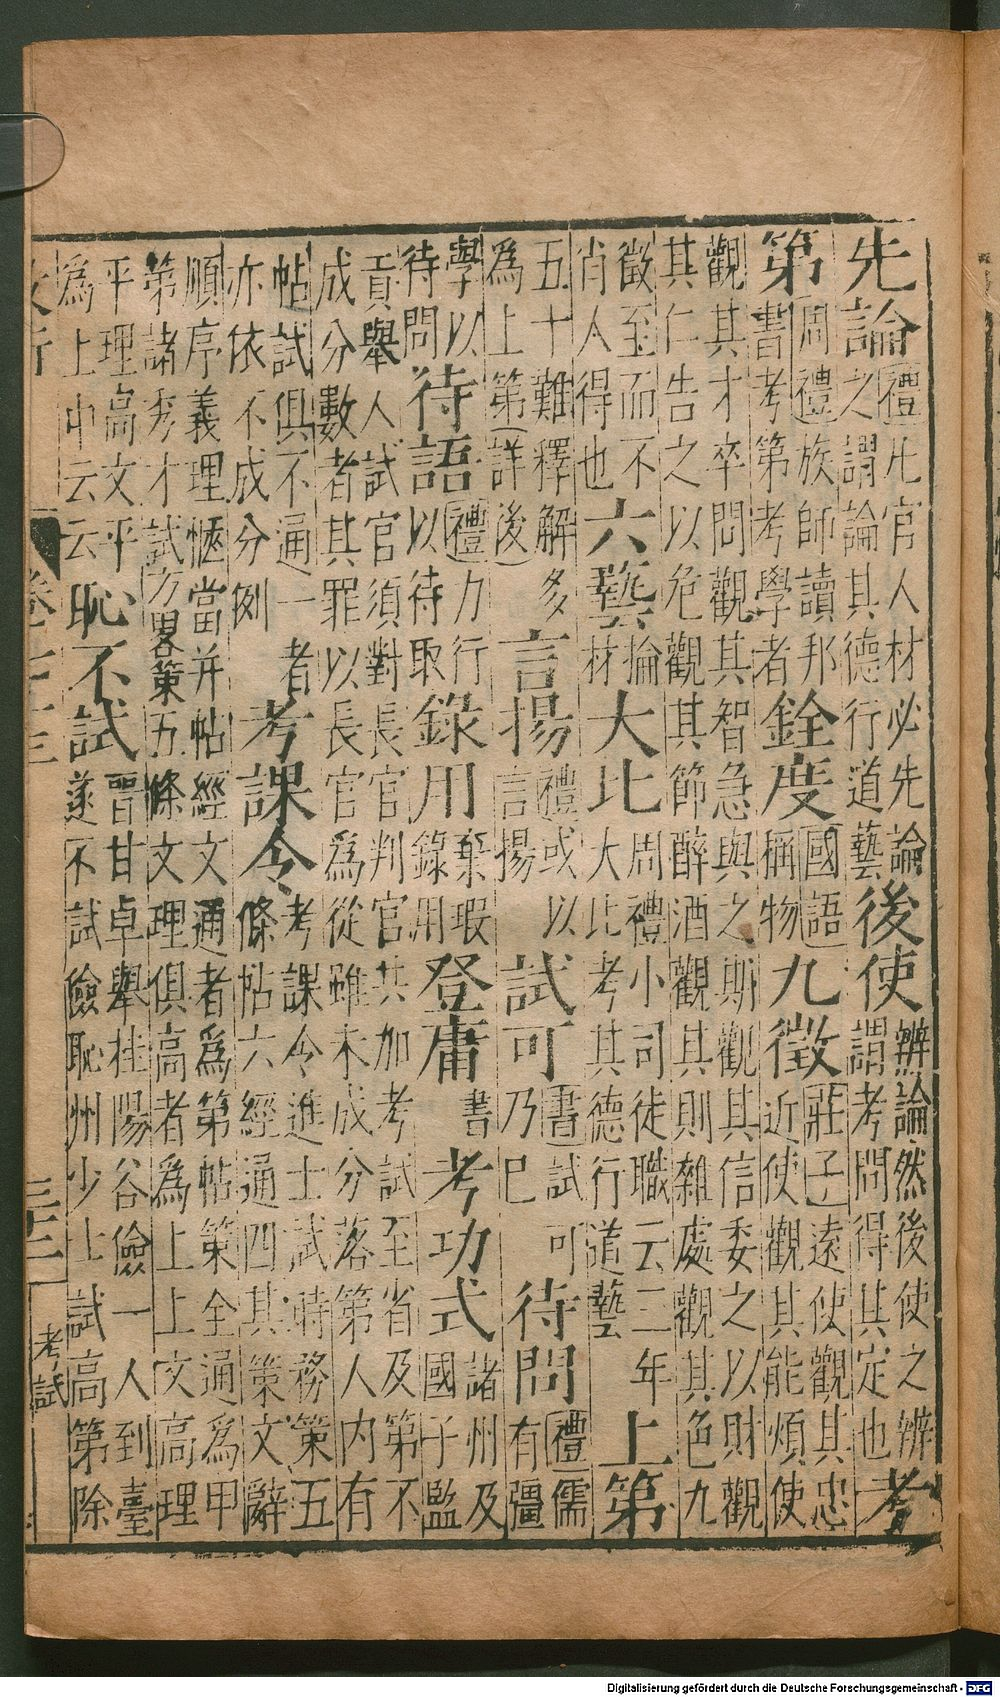 先論
禮凡官人材必先論
之謂論其德行道藝
後使
辨論然後使之辨
謂考問得其定也
考
第
周禮族師讀邦
書考第考學者
銓度
國語
稱物
九徵
莊子遠使觀其忠
近使觀其能煩使
觀其才卒問觀其智急與之期觀其信委之以財觀
其仁告之以危觀其節醉酒觀其則雜處觀其色九
徵至而不
肖人得也
六藝
掄
材
大比
周禮小司徒職云三年
大比考其德行道藝
上第
五十難釋解多
為上第(詳後)
言揚
禮或以
言揚
試可
書試可
乃已
待問
禮儒
有彊
學以
待問
待語
禮力行
以待取
錄用
棄瑕
錄用
登庸
書
考功式
諸州及
國子監
貢舉人試官須對長官判官共加考試至省及第不
成分數者其罪以長官為從雖未成分落第人內有
帖試俱不通一者
亦依不成分例
考課令
考課令進士試時務策五
條帖六經通四其策文辭
順序義理愜當并帖經文通者為第帖策全通為甲
第諸秀才試方畧策五條文理俱高者為上上文高理
平理高文平
為上中云云
恥不試
晉甘卓舉桂陽谷儉一人到臺
遂不試儉恥州少士試高第除
考試
Digitalisierung gefördert durch die Deutsche Forschungsgemeinschaft - DFG